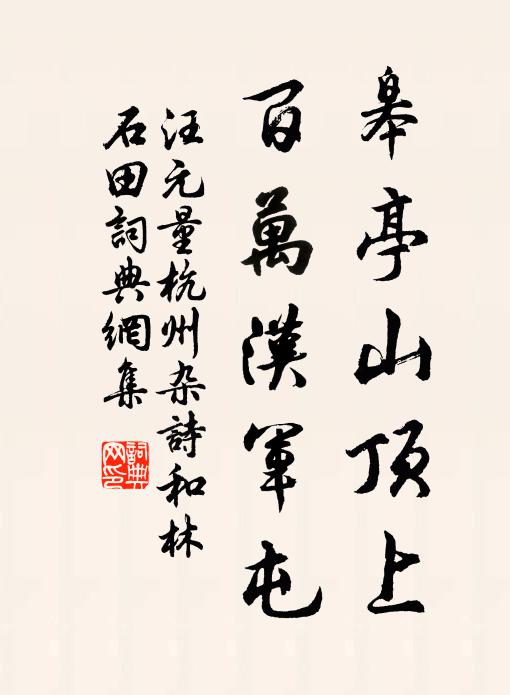 皋亭山頂上
百萬漢軍屯
汪元量杭州杂詩和林
石田詞典網集
詞典
网印